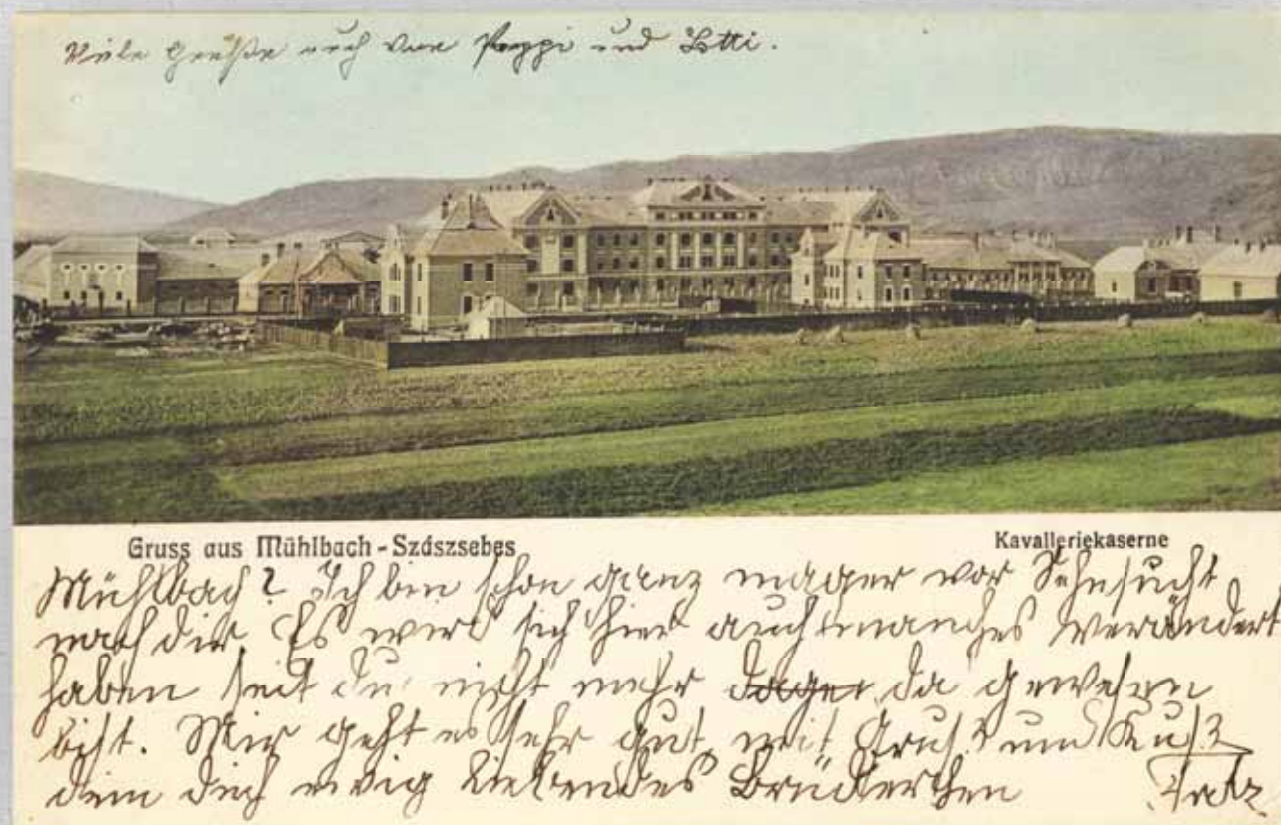 Viele Grüße auch von Peppi und Lotti.
Gruss aus Mühlbach - Szászsebes
Kavalleriekaserne
Mühlbach? Ich bin schon ganz mager vor Sehnsucht
nach dir. Es wird sich hier auch manches verändert
haben seit du nicht mehr da gewesen
bist. Mir geht es sehr gut, mit Gruß und Kuß
dein dich ewig liebendes Brüderchen